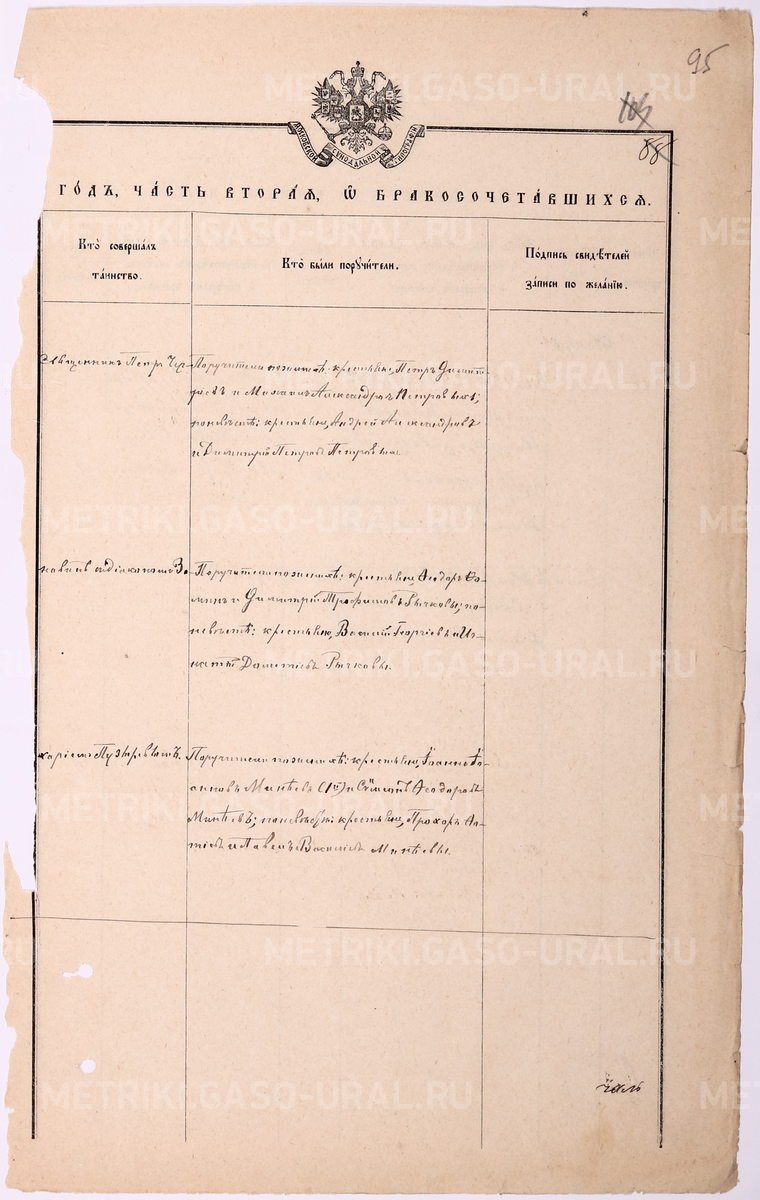 95
103
88
МОСКОВСКОЙ СѴНОДАЛЬНОЙ ТИПОГРАФІИ
ГО́ДЪ, ЧА́СТЬ ВТОРА́Я, Ѽ БРАКОСОЧЕТА́ВШИХСЯ.
Кто̀ соверша́лъ
та́инство.
Кто̀ бы́ли поручи́тели.
По́дпись свидѣ́телей
за́писи по жела́нїю.
Священникъ Петръ
Поручители по женихѣ: крестьяне, Петръ Димит
ріевъ и Михаилъ Александровъ Петровыхъ;
по невѣстѣ: крестьяне, Андрей Александровъ
и Димитрій Петровъ Петровыхъ.
съ діакономъ За-
Поручители по женихѣ: крестьяне, Ѳеодоръ Ѳо
минъ и Димитрій Трофимовъ Рычковы; по
невѣстѣ: крестьяне, Василій Георгіевъ и Иг-
натій Дометіевъ Рычковы.
харіемъ Пузыревымъ.
Поручители по женихѣ: крестьяне, Іоаннъ Іо-
анновъ Минѣевъ (1й) и Сѵмеонъ Ѳеодоровъ
Минѣевъ; по невѣстѣ: крестьяне, Прохоръ Ан-
и Павелъ Василіевъ Минѣевы.
METRIKI.GASO-URAL.RU